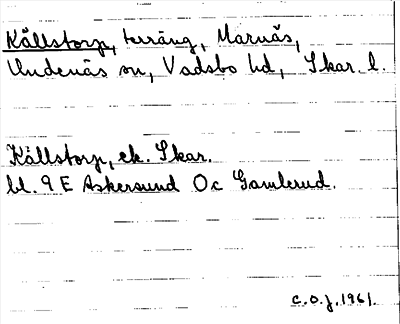 Kållstorp, terräng, Marnäs,
Undenäs sn, Vadsbo hd, Skar. l.
Kållstorp, ek. Skar.
bl. 9 E Askersund 0c Gamlerud.
C.O.J. 1961.